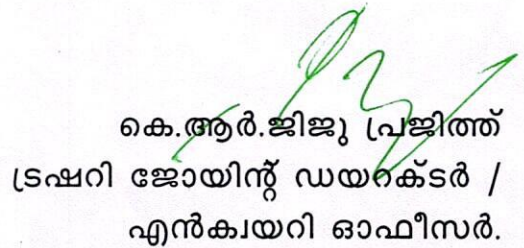 കെ.ആർ.ജിജു പ്രജിത്ത്
ട്രഷറി ജോയിന്റ് ഡയറക്ടർ /
എൻക്വയറി ഓഫീസർ.